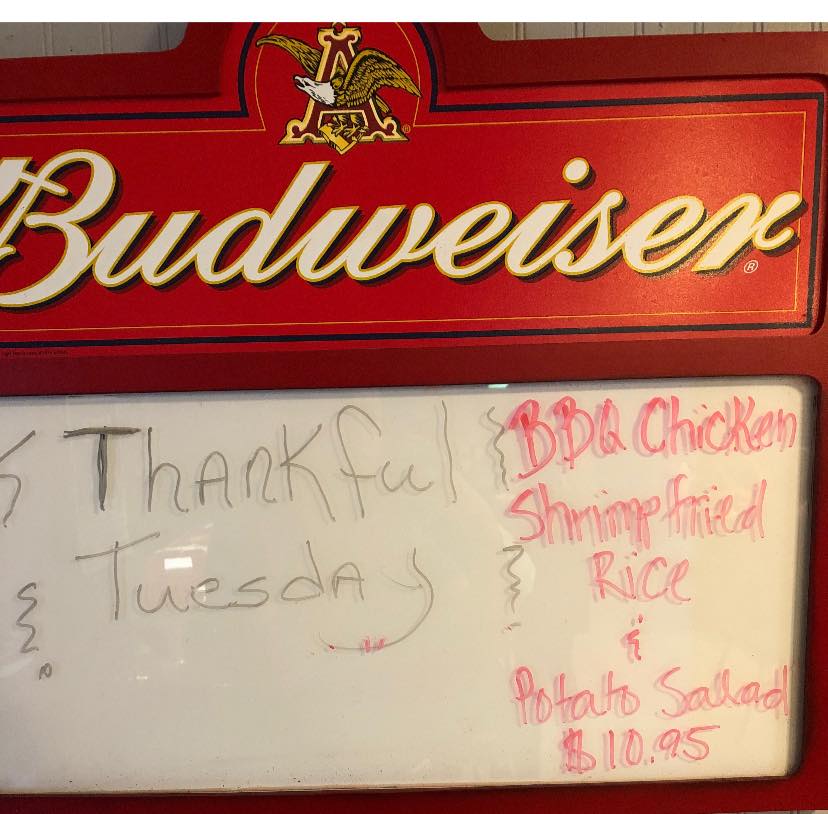 Budweiser
Thankful
Tuesday
BBQ Chicken
Shrimp fried
Rice
&
Potato Salad
$10.95